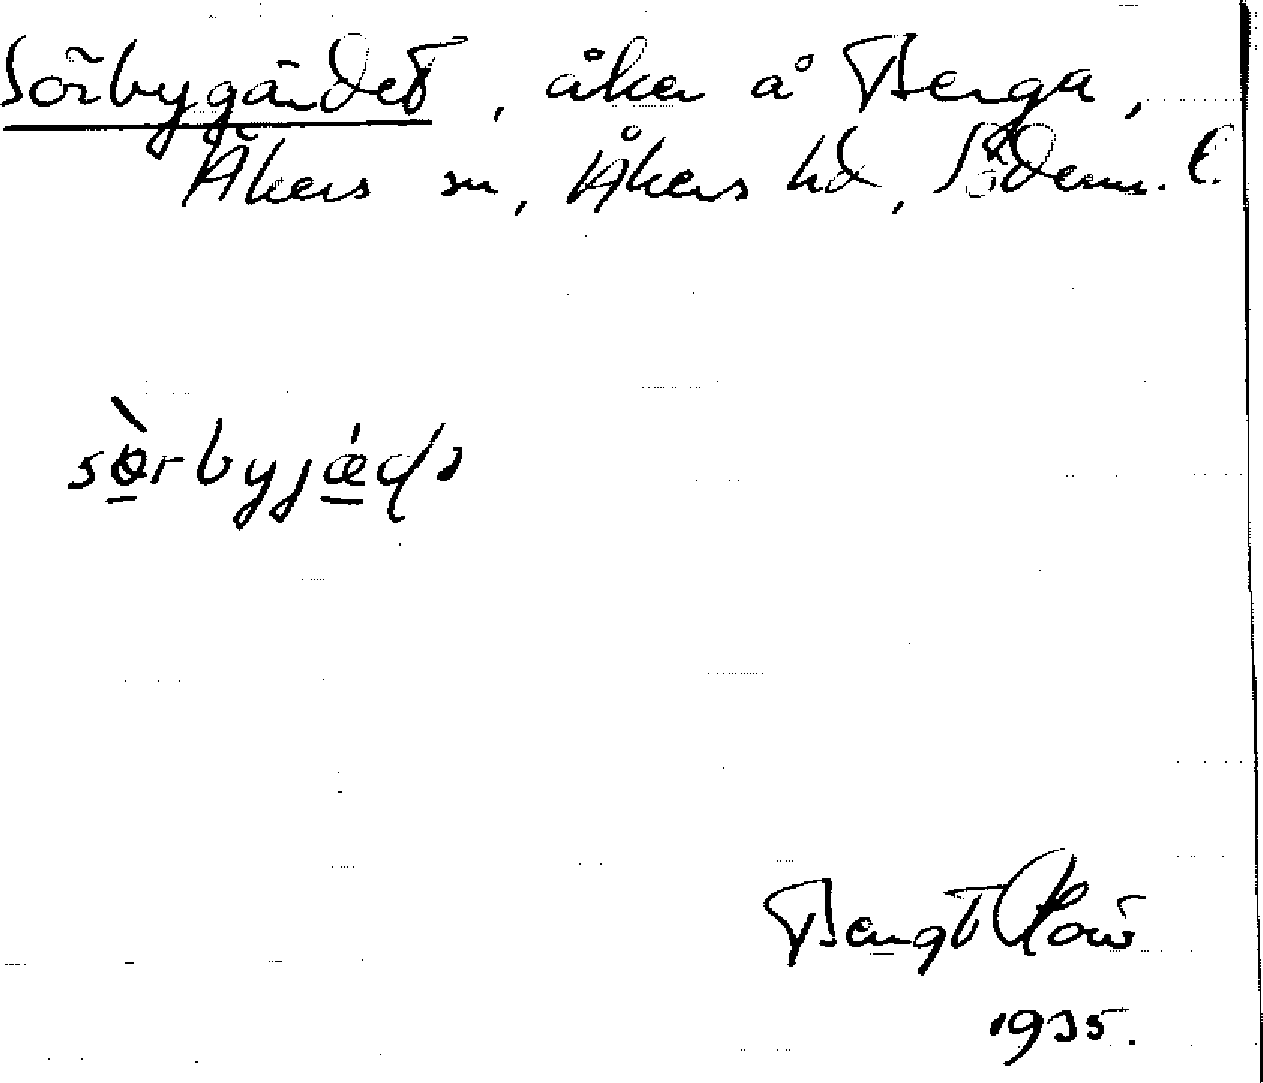 Sörbygärdet, åker å Berga,
Åkers sn, Åkers hd, Söderm. l.
sɵ̀rbyjæ̀ɖə
Bengt
1935.